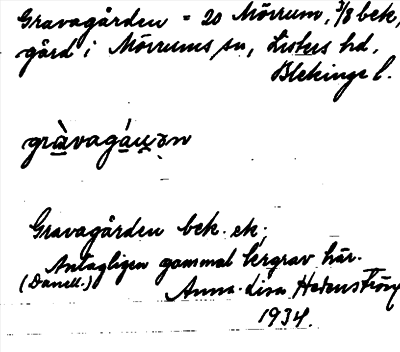 Gravagården = 20 Mörrum, 3/8 bek,
gård i Mörrums sn, Listers hd,
Blekinge l.
Gravagården bek. ek;
Antagligen gammal lergrav här.
(Danell.) Anna-Lisa Hedenström
1934.